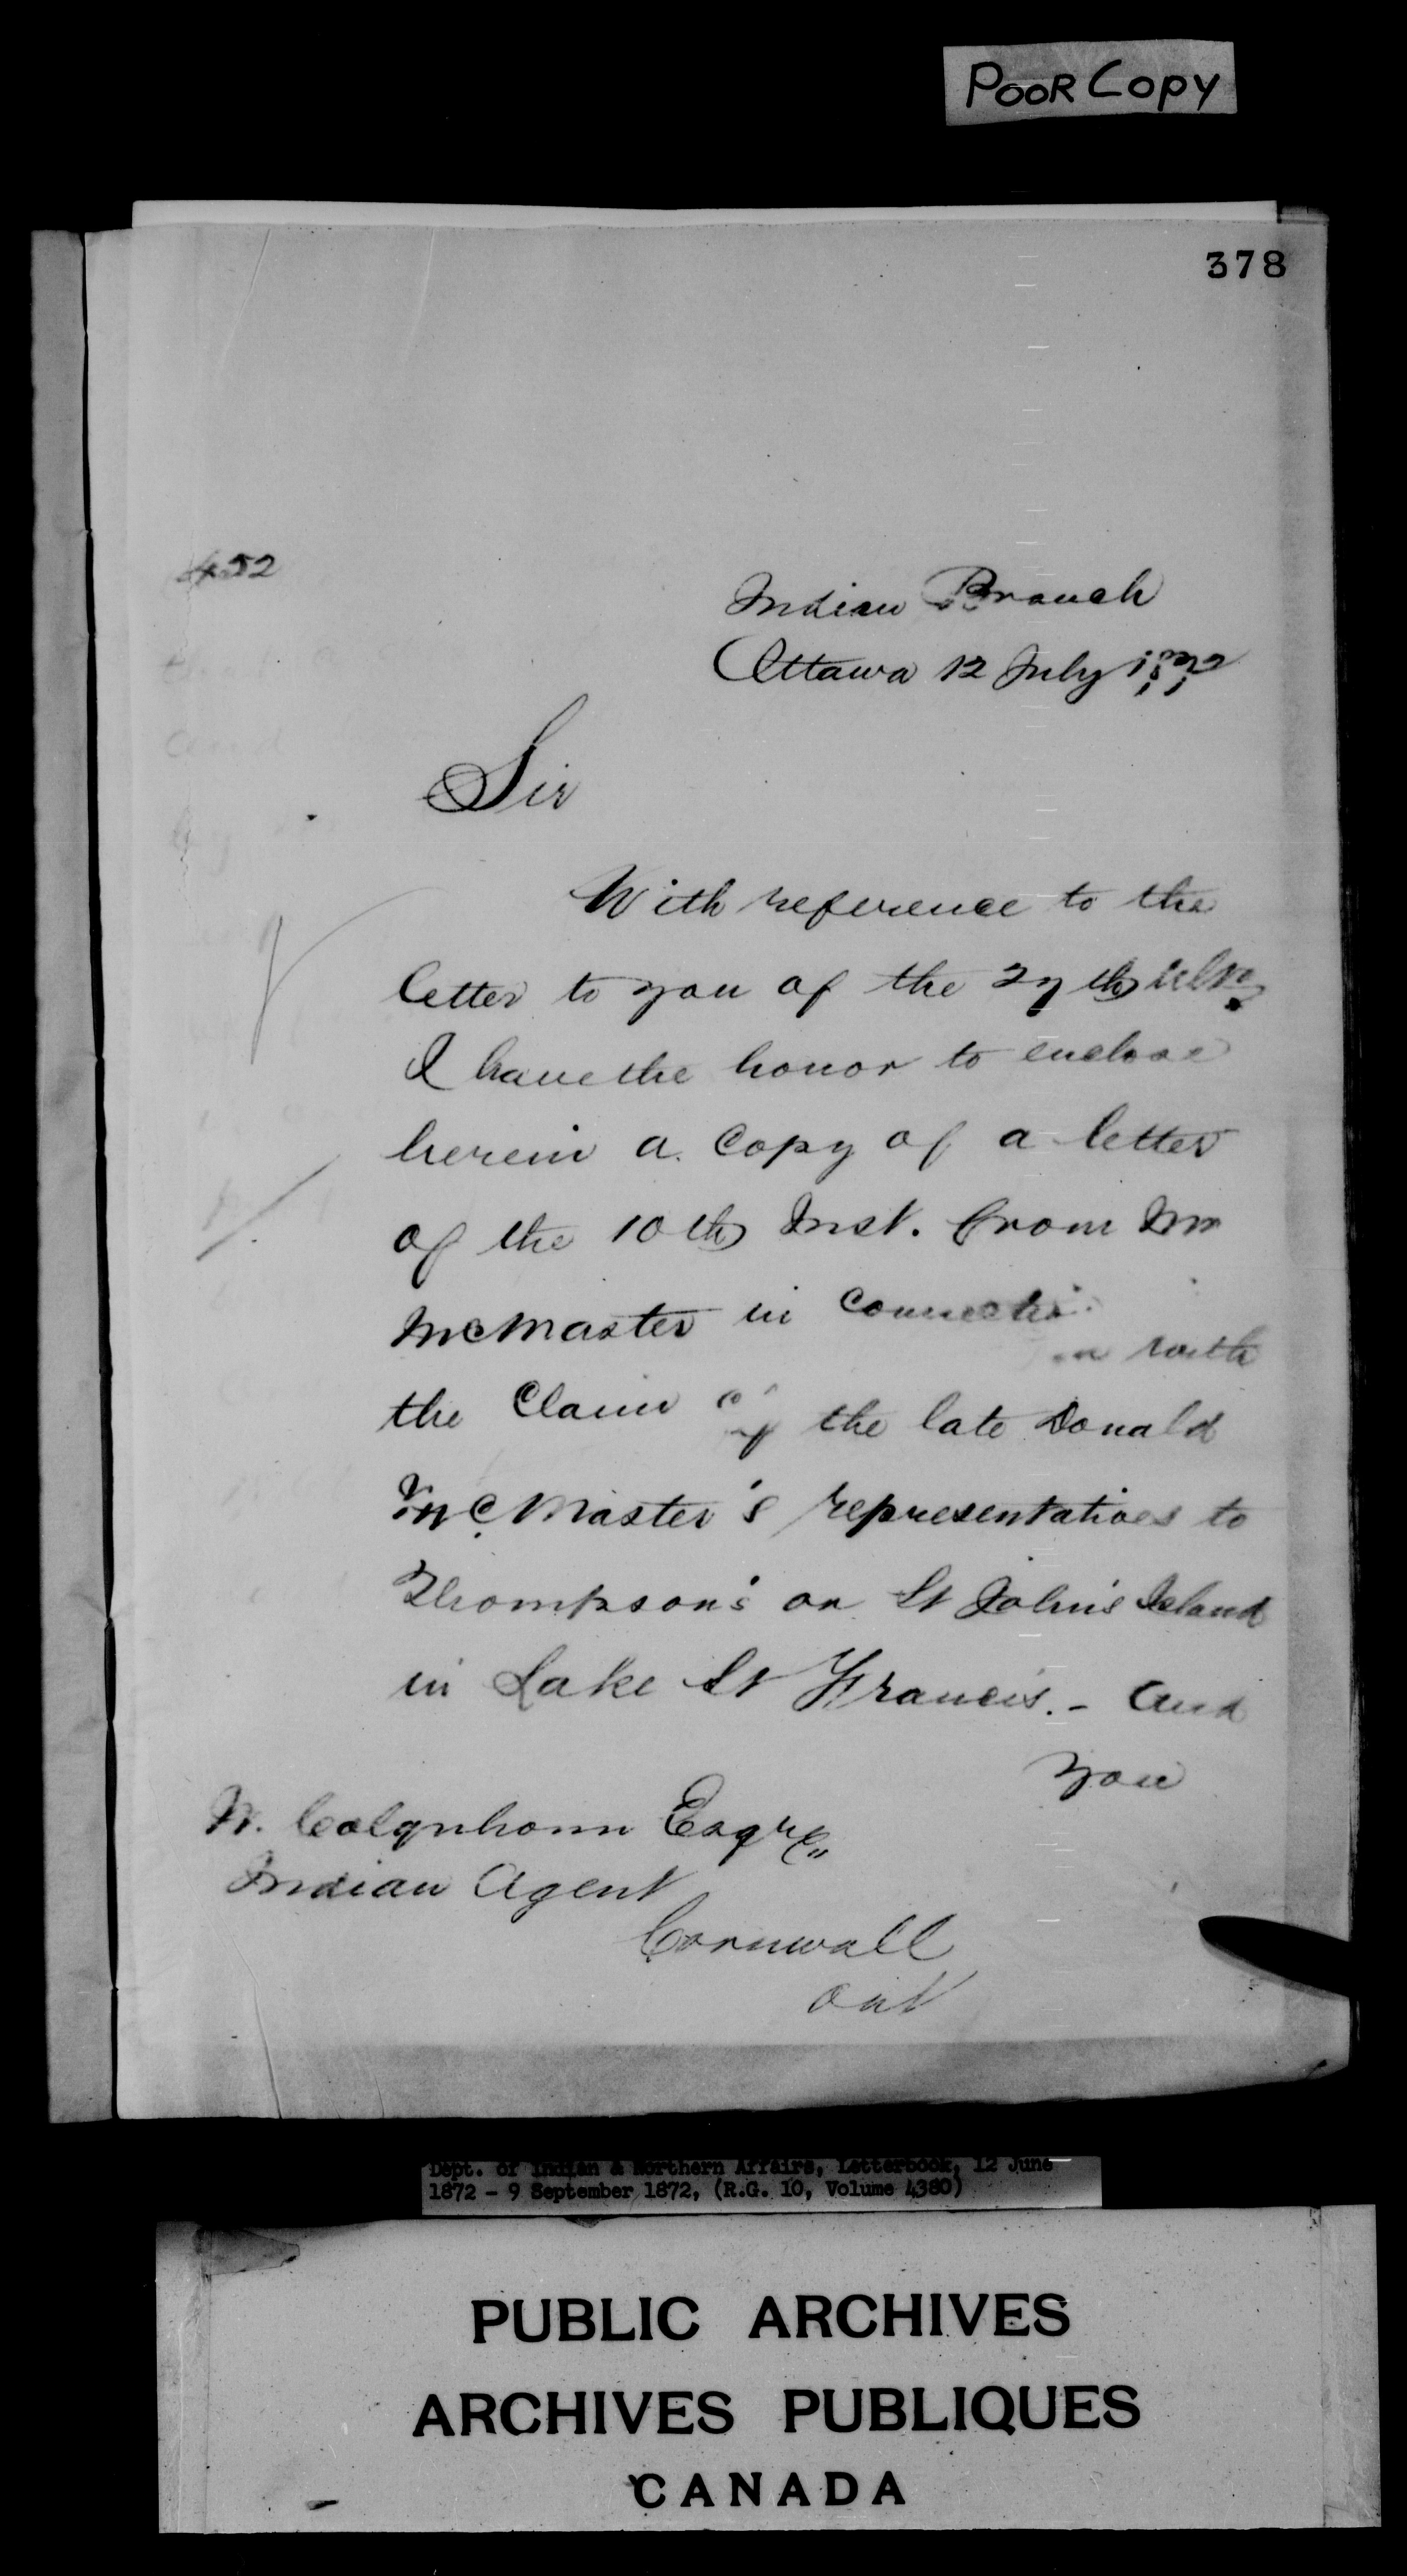 POOR Copy
378
452
Indian Branch
Ottawa 12 July 1872
Sir
With reference to the
letter to you of the 27th ulto
I have the honor to enclose
herein a Copy of a letter
of the 10th Inst. from Mr
McMaster in Connection with
the Claim of the late Donald
McMaster's representatives to
Thompson's or St John's Island
in Lake St Francis. - and
you
W. Colquhoun Esqre
Indian Agent
Cornwall
Ont
Dept. of Indian & Northern Affairs, Letterbook, 12 June
1872 - 9 September 1872, (R.G. 10, Volume 4380)
PUBLIC ARCHIVES
ARCHIVES PUBLIQUES
CANADA